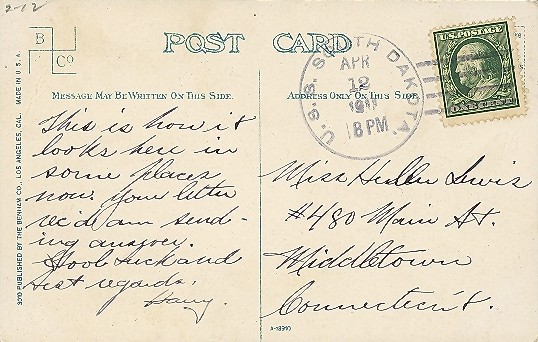 2-12
B
Co
POST CARD
U.S.S. SOUTH DAKOTA
APR
12
1911
8 PM
U.S. POSTAGE
ONE CENT
MESSAGE MAY BE WRITTEN ON THIS SIDE.
ADDRESS ONLY ON THIS SIDE
This is how it
looks here in
some places
now. Your letter
rec'd am send-
ing answer.
Good luck and
best regards.
Harry.
Miss Hullen Lewis
#480 Main St.
Middletown
Connecticut.
329 PUBLISHED BY THE BENHAM CO., LOS ANGELES, CAL. MADE IN U.S.A.
A-18910